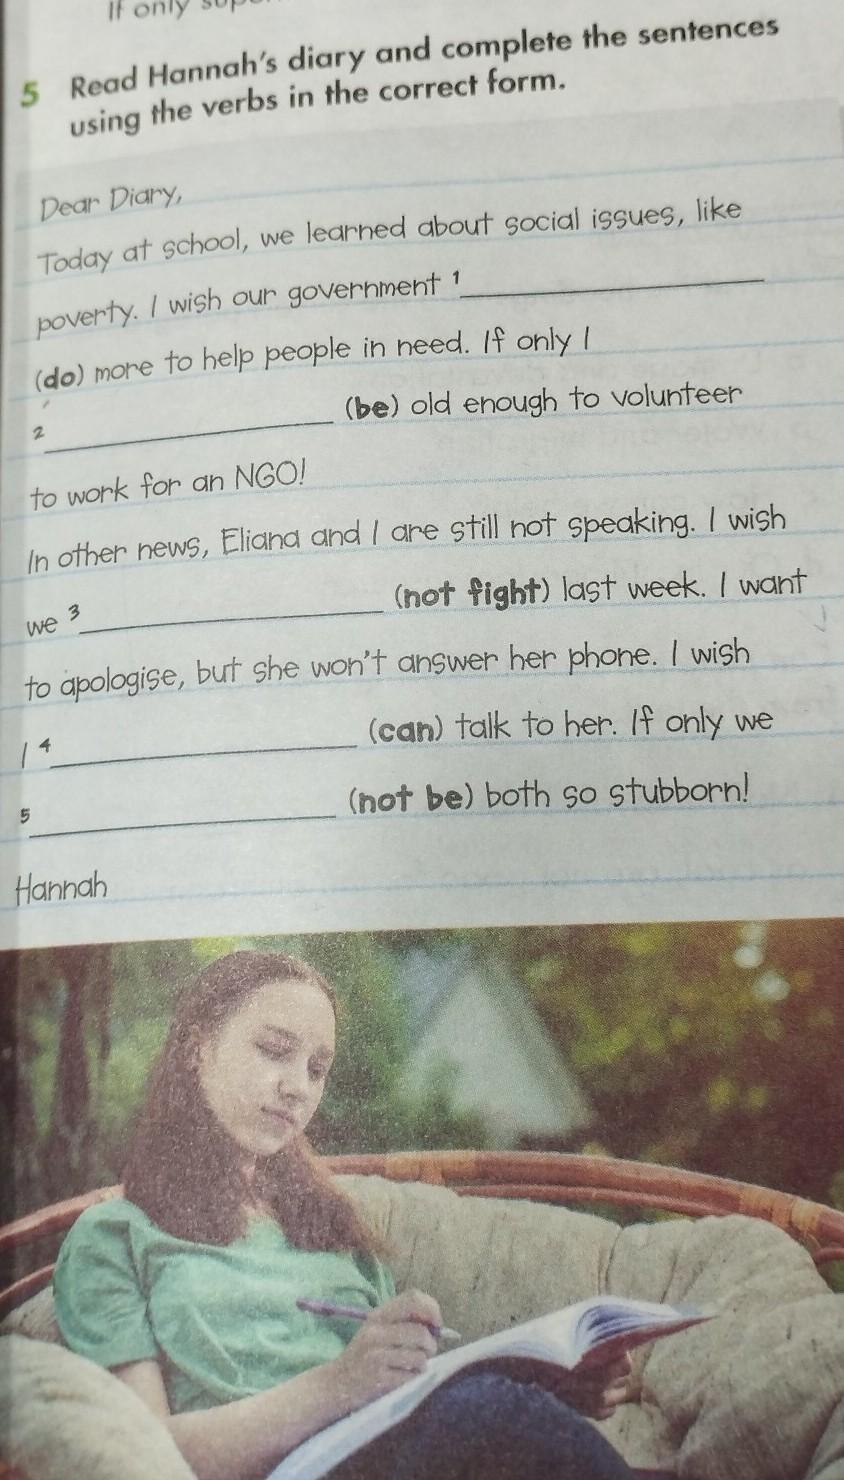 If only
5 Read Hannah's diary and complete the sentences
using the verbs in the correct form.
Dear Diary,
Today at school, we learned about social issues, like
poverty. I wish our government 1
(do) more to help people in need. If only I
2 (be) old enough to volunteer
to work for an NGO!
In other news, Eliana and I are still not speaking. I wish
we 3 (not fight) last week. I want
to apologise, but she won't answer her phone. I wish
I 4 (can) talk to her. If only we
5 (not be) both so stubborn!
Hannah